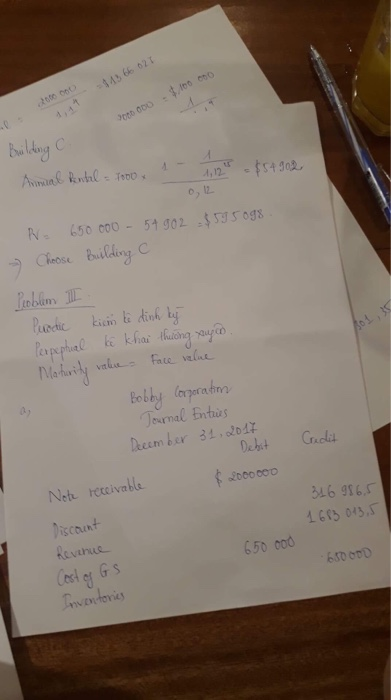 2000 000
1,1⁴ = $1366 025
2000 000 = $ 100 000
1
Building C
Annual Rental = 7000 × 1 - 1 / 1,12²⁵ / 0,12 = $54902
PV = 650 000 - 54 902 = $595 098
=> Choose Building C
Problem III.
Periodic kiểm kê định kỳ
Perpeptual kê khai thường xuyên.
Maturity value = Face value
a,
Bobby Corporation
Journal Entries
December 31, 2017
Debit Credit
Note receivable $ 2000000
Discount 316 986,5
Revenue 1 683 013,5
Cost of GS 650 000
Inventories 650 000